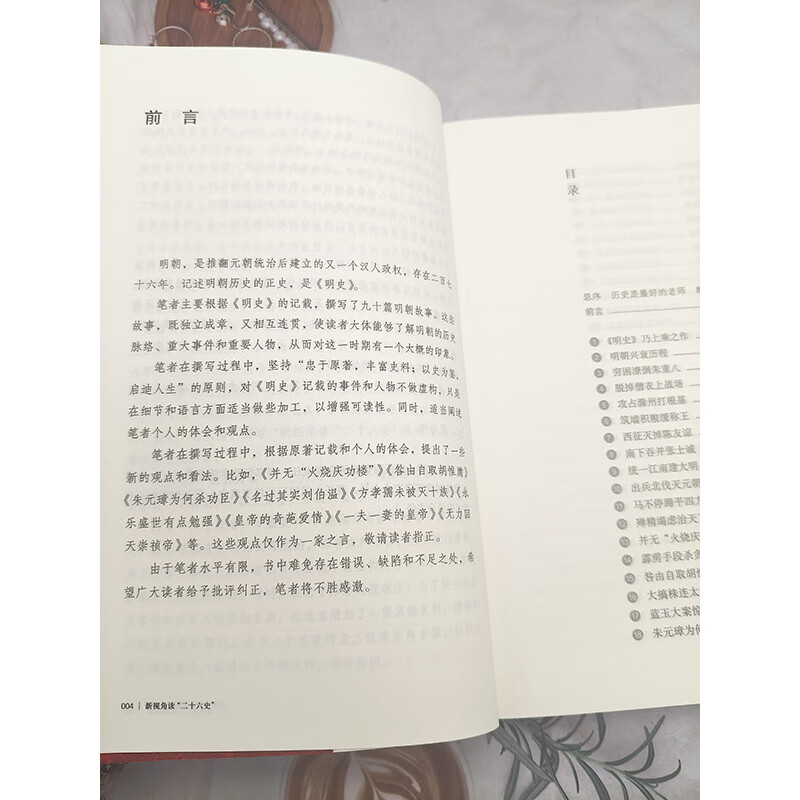 前 言
明朝，是推翻元朝统治后建立的又一个汉人政权，存在二百七
十六年。记述明朝历史的正史，是《明史》。
笔者主要根据《明史》的记载，撰写了九十篇明朝故事。这些
故事，既独立成章，又相互连贯，使读者大体能够了解明朝的历史
脉络、重大事件和重要人物，从而对这一时期有一个大概的印象。
笔者在撰写过程中，坚持“忠于原著，丰富史料；以史为鉴，
启迪人生”的原则，对《明史》记载的事件和人物不做虚构，只是
在细节和语言方面适当做些加工，以增强可读性。同时，适当阐述
笔者个人的体会和观点。
笔者在撰写过程中，根据原著记载和个人的体会，提出了一些
新的观点和看法。比如，《并无“火烧庆功楼”》《咎由自取胡惟庸》
《朱元璋为何杀功臣》《名过其实刘伯温》《方孝孺未被灭十族》《永
乐盛世有点勉强》《皇帝的奇葩爱情》《一夫一妻的皇帝》《无力回
天崇祯帝》等。这些观点仅作为一家之言，敬请读者指正。
由于笔者水平有限，书中难免存在错误、缺陷和不足之处，希
望广大读者给予批评纠正，笔者将不胜感激。
004 | 新视角读“二十六史”
目
录
总序 历史是最好的老师
前言
1 《明史》乃上乘之作
2 明朝兴衰历程
3 穷困潦倒朱重八
4 脱掉僧衣上战场
5 攻占滁州打根基
6 筑墙积粮缓称王
7 西征灭掉陈友谅
8 南下吞并张士诚
9 统一江南建大明
10 出兵北伐灭元朝
11 马不停蹄平四方
12 殚精竭虑治天
13 并无“火烧庆
14 霹雳手段杀贪
15 咎由自取胡惟
16 大搞株连太
17 蓝玉大案惊
18 朱元璋为何